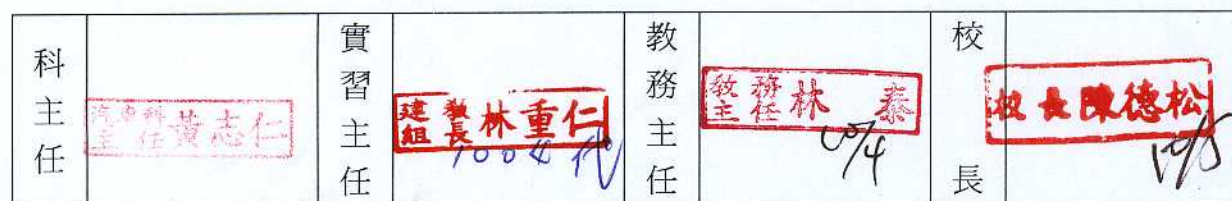 科主任
汽車科主任 黃志仁
實習主任
建教組長 林重仁
1004 代
教務主任
教務主任 林 泰
10/4
校長
校長陳德松
10/5